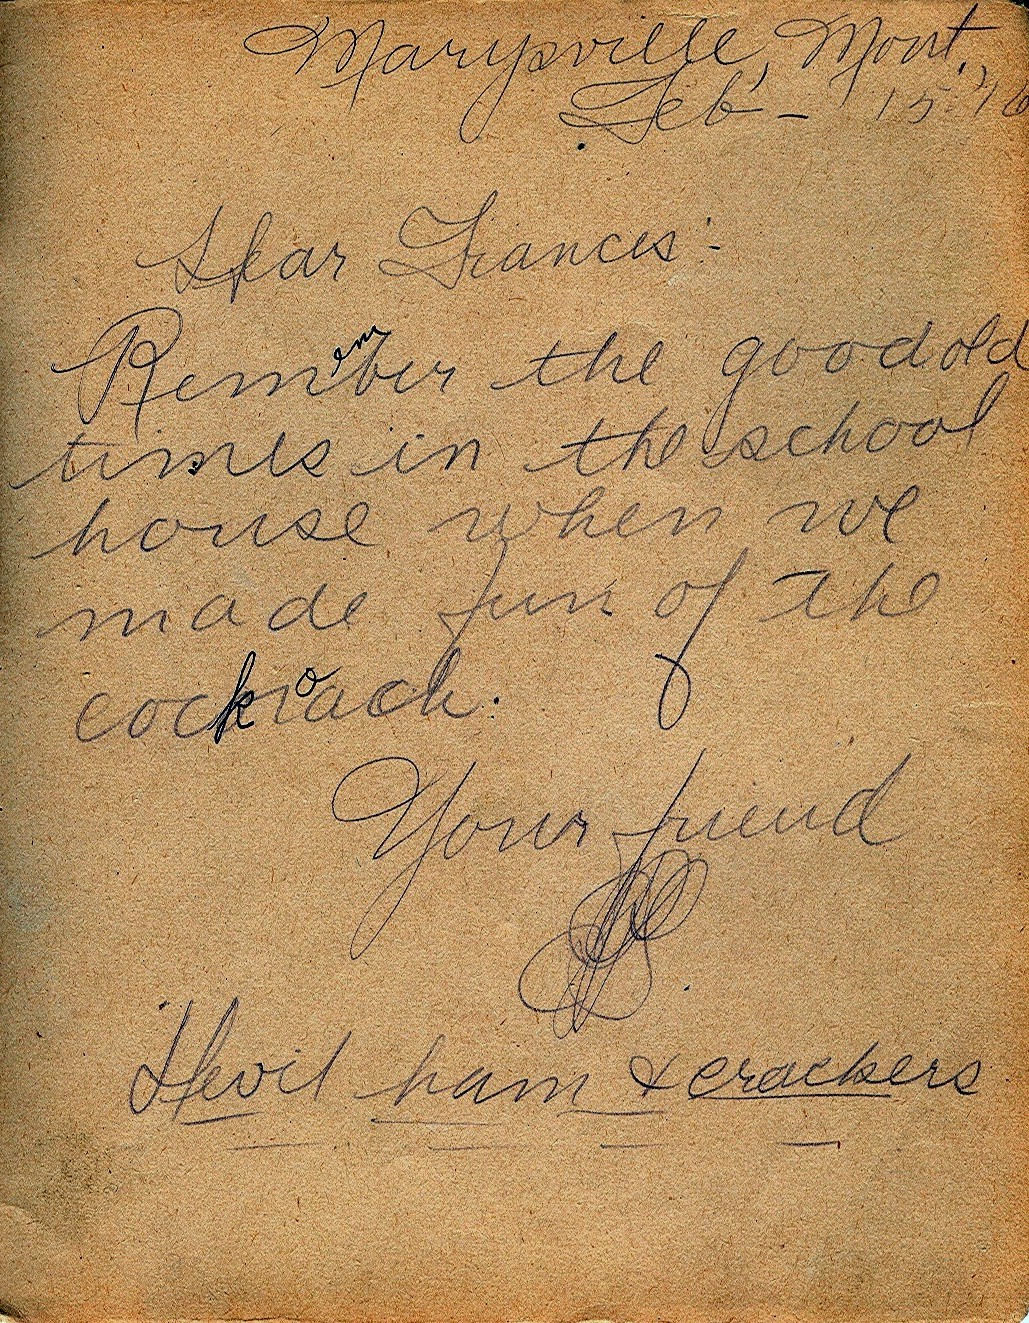 Marysville, Mont.,
Feb - 15
Dear Frances:-
Remember the good old
times in the school
house when we
made fun of the
cockroach.
Your friend
Devil ham & crackers